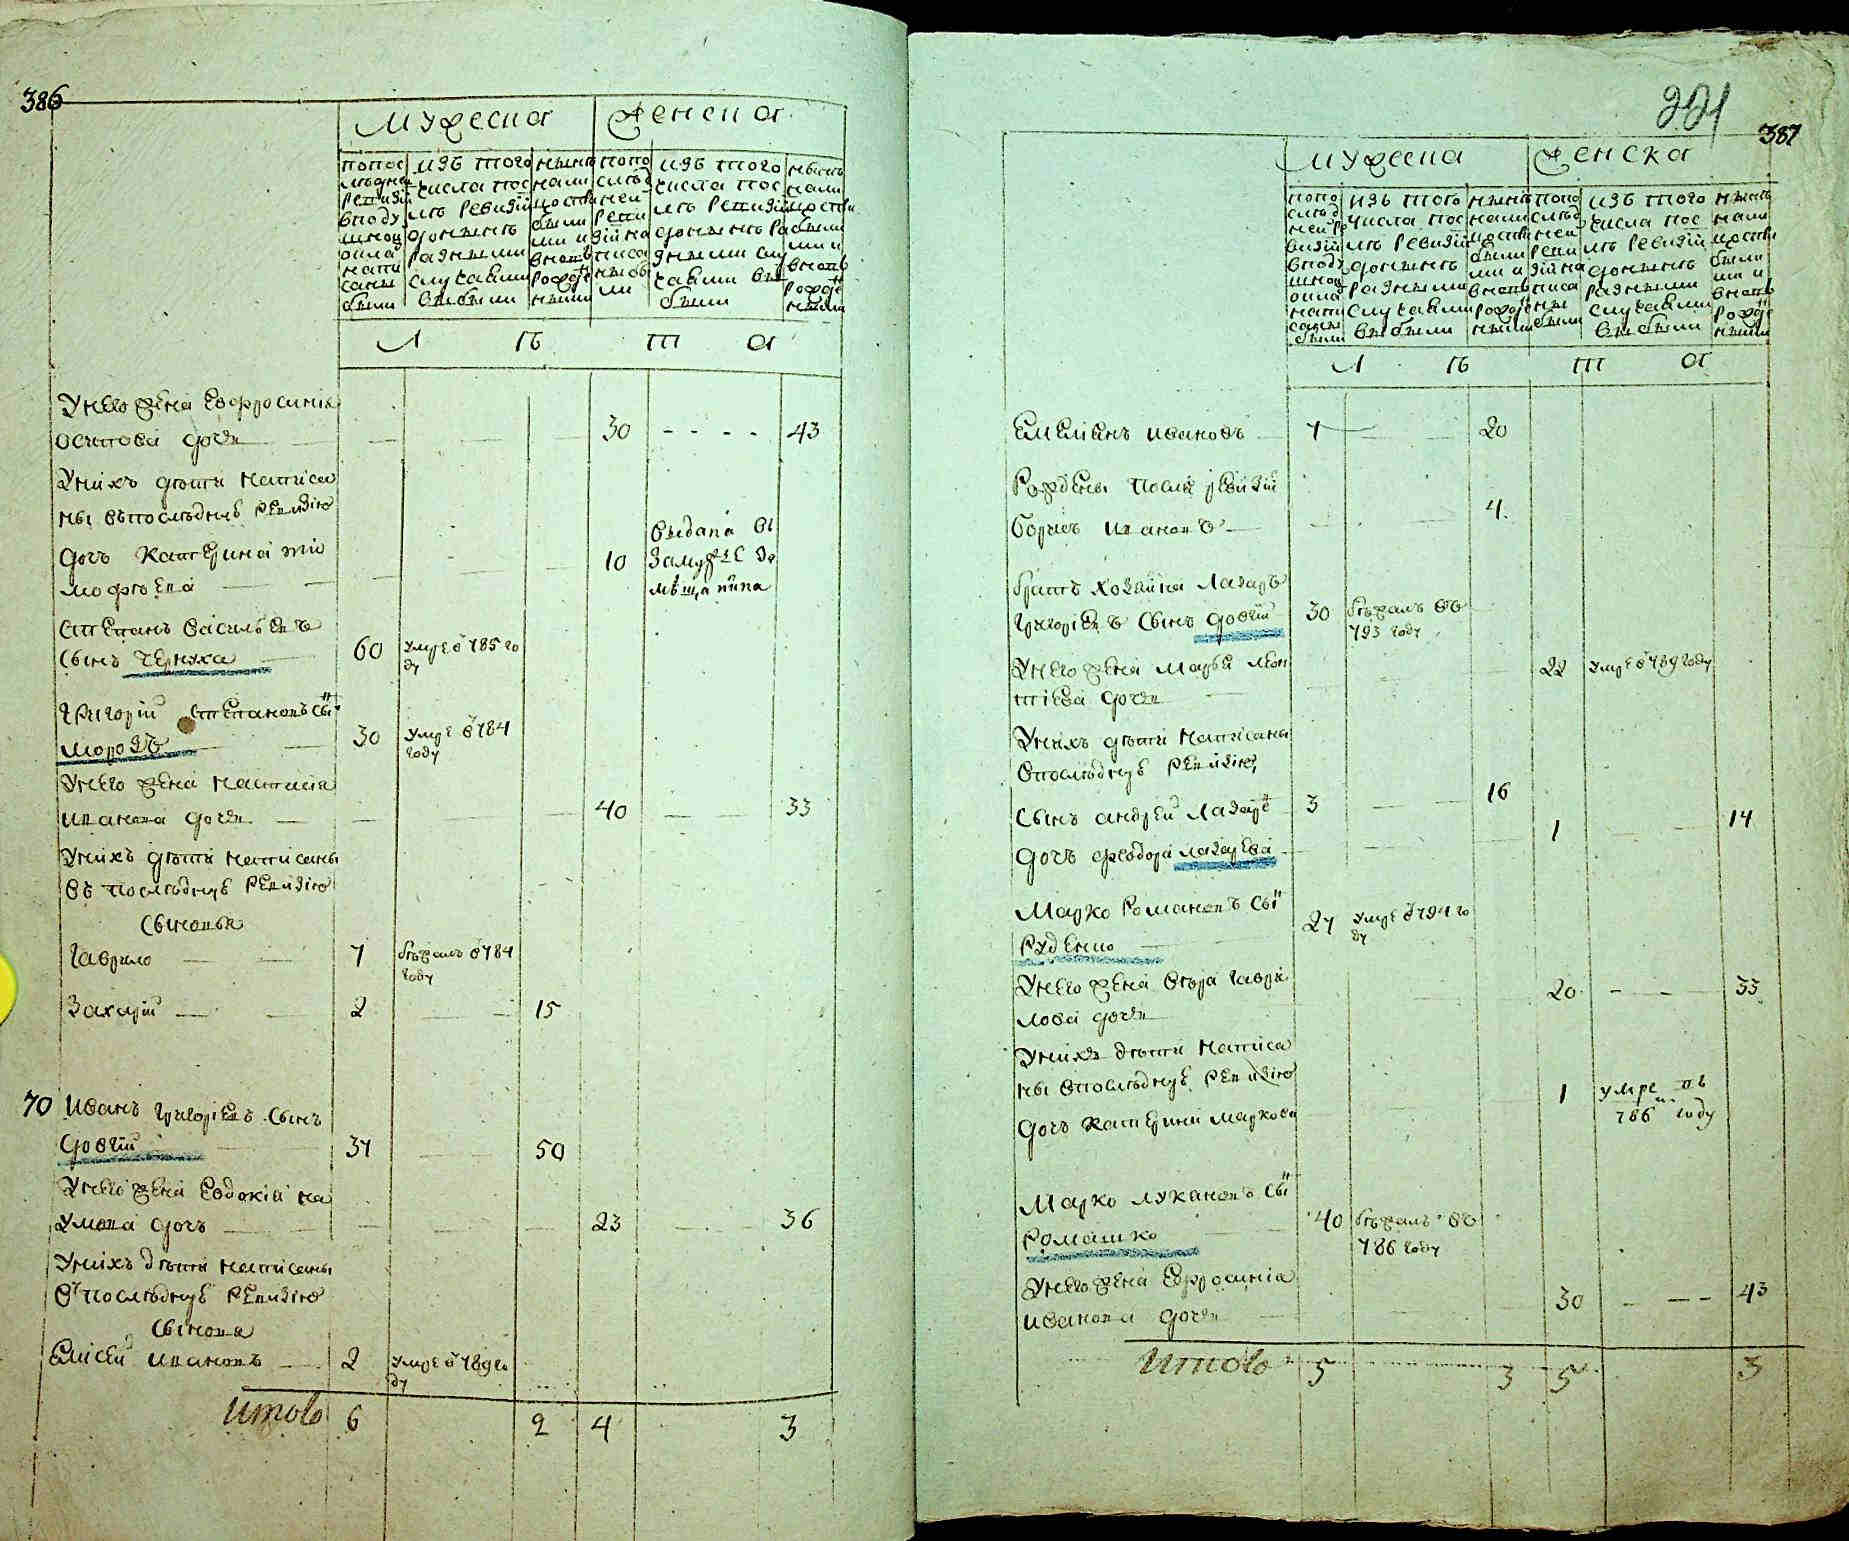 386
Мужеска Женска
попос
лѣдней
ревизіи
вподу
шной
окла
напи
саны
были
изъ того
числа пос
лѣ ревизіи
донынѣ
разными
случаями
выбыли
нынѣ
нали
цо
были
ми и
вновь
рожде
ными
попо
слѣд
ней
реви
зіи на
писа
ны бы
ли
изъ того
числа пос
лѣ ревизіи
донынѣ ра
зными слу
чаями вы
были
нынѣ
нали
цо
были
ми и
вновь
рожде
ными
Л ѣ т а
Унего жена Евфросинія
осипова дочь 30 43
Унихъ дѣти написа
ны въпослѣднуе ревизію
дочь Катерина тим
мофѣева 10 выдана вь
замужес за
мѣщанина
Степанъ Васильевъ
сынъ Чернуха 60 умре в 785 го
ду
Григорій Степановъ сынъ
Морозъ 30 умре в 784
году
Унего жена Настасія
иванова дочь 40 33
Унихъ дѣти написаны
въ послѣднуе ревизію
сыновья
Гаврило 7 бѣжалъ в 784
году
Захарій 2 15
70 Иванъ григоріевъ сынъ
довгій 37 50
Унего жена Евдокія на
умова дочь 23 36
Унихъ дѣти написаны
в послѣднуе ревизію
сынова
Елисей ивановъ 2 умре в 789 го
ду
Итого 6 2 4 3
221
387
Мужеска Женска
попо
слѣд
ней ре
визіи
вподу
шной
окла
напи
саны
были
изъ того
числа пос
лѣ ревизіи
донынѣ
разными
случаями
выбыли
нынѣ
нали
цо
были
ми и
вновь
рожде
ными
попо
слѣд
ней
реви
зіи на
писа
ны
были
изъ того
числа пос
лѣ ревизіи
донынѣ
разными
случаями
выбыли
нынѣ
нали
цо
были
ми и
вновь
рожде
ными
Л ѣ т а
Емелянъ ивановъ 7 20
Рождены послѣ ревизіи
Борисъ ивановъ 4
братъ хозяина Лазарь
григоріевъ сынъ довгій 30 бѣжалъ въ
793 году
Унего жена марья леон
тіева дочь 22 умре в 789 году
Унихъ дѣти написаны
впослѣднуе ревизію
сынъ андрей лазаре 3 16
дочь феодора лазарева 1 14
Марко романовъ сынъ
Руденко 27 умре в 794 го
ду
Унего жена Вѣра гаври
лова дочь 20 33
Унихъ дѣти написа
ны впослѣднуе ревизію
дочь катерина маркова 1 умре въ
786 году
Марко лукановъ сынъ
Ромашко 40 бѣжалъ въ
786 году
Унего жена Ефросинія
иванова дочь 30 43
Итого 5 3 5 3